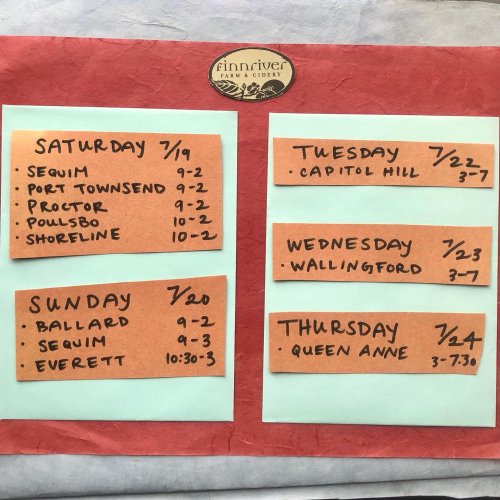 finnriver
FARM & CIDERY
SATURDAY 7/19
· SEQUIM 9-2
· PORT TOWNSEND 9-2
· PROCTOR 9-2
· POULSBO 10-2
· SHORELINE 10-2
SUNDAY 7/20
· BALLARD 9-2
· SEQUIM 9-3
· EVERETT 10:30-3
TUESDAY 7/22
· CAPITOL HILL 3-7
WEDNESDAY 7/23
· WALLINGFORD 3-7
THURSDAY 7/24
· QUEEN ANNE 3-7:30